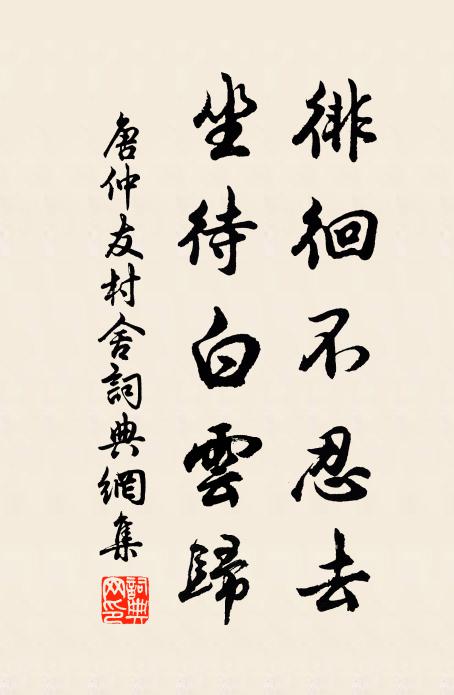 徘徊不忍去
坐待白雲歸
唐仲友村舍詞典網集
詞典
网印